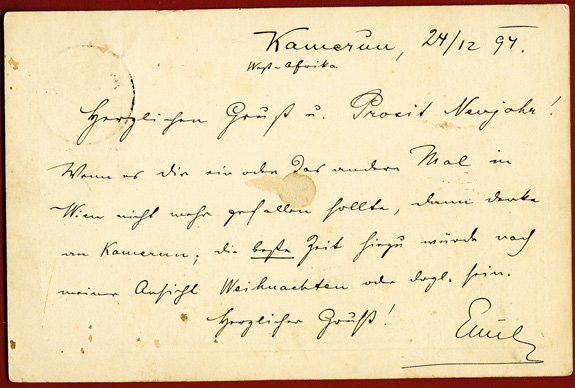 Kamerun, 24/12 94.
West-Afrika
Herzlichen Gruß u. Prosit Neujahr!
Wenn es dir ein oder das andere Mal in
Wien nicht mehr gefallen sollte, dann denke
an Kamerun; die beste Zeit hiezu würde nach
meiner Ansicht Weihnachten oder dergl. sein.
Herzlicher Gruß!
Emil